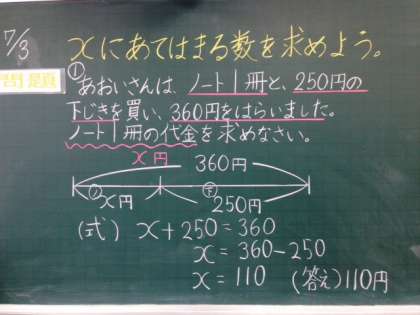 7/3
xにあてはまる数を求めよう。
問題
① あおいさんは、ノート1冊と、250円の
下じきを買い、360円をはらいました。
ノート1冊の代金を求めなさい。
x円
360円
ノ
下
x円
250円
(式) x+250=360
x = 360-250
x = 110 (答え)110円